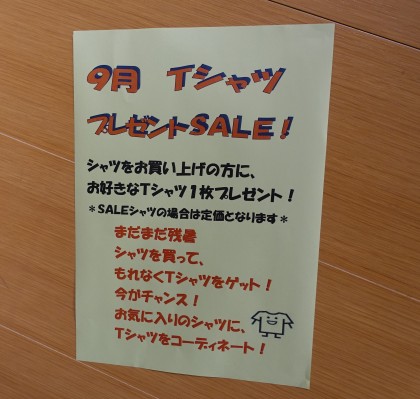 9月 Tシャツ
プレゼントSALE！
シャツをお買い上げの方に、
お好きなTシャツ1枚プレゼント！
＊SALEシャツの場合は定価となります＊
まだまだ残暑
シャツを買って、
もれなくTシャツをゲット！
今がチャンス！
お気に入りのシャツに、
Tシャツをコーディネート！